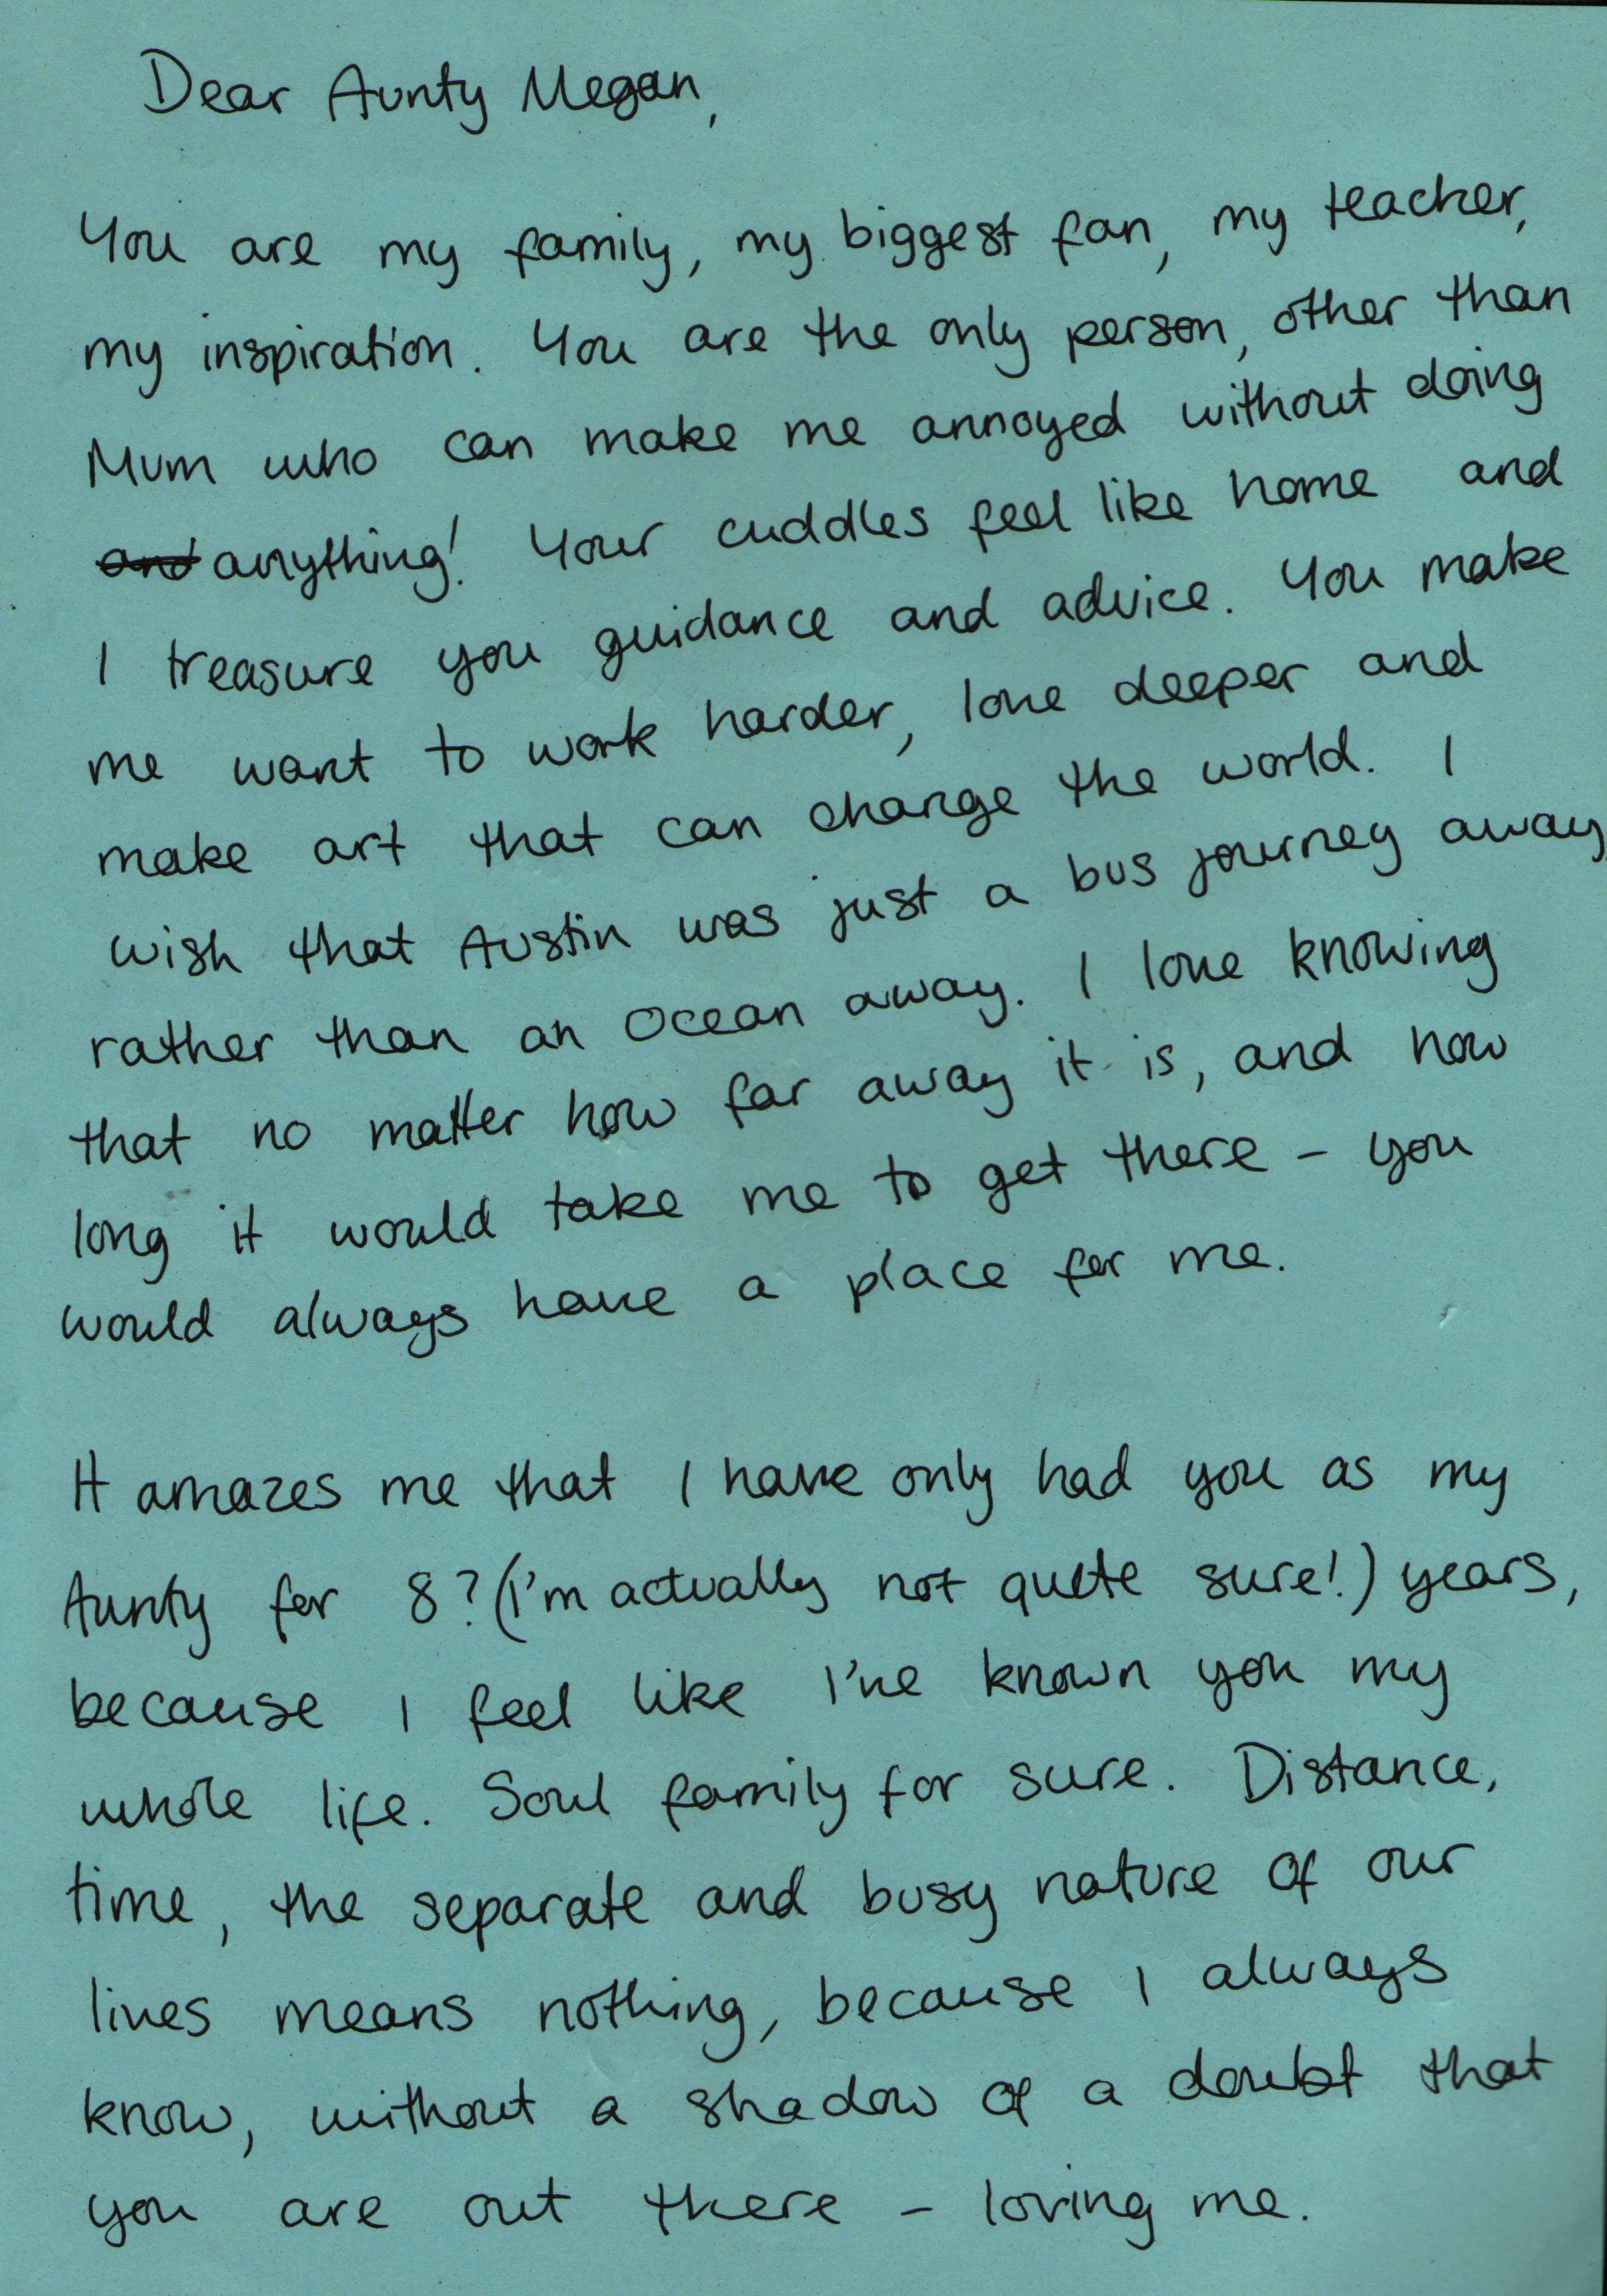 Dear Aunty Megan,
You are my family, my biggest fan, my teacher,
my inspiration. You are the only person, other than
Mum who can make me annoyed without doing
and anything! Your cuddles feel like home and
I treasure you guidance and advice. You make
me want to work harder, love deeper and
make art that can change the world. I
wish that Austin was just a bus journey away
rather than an Ocean away. I love knowing
that no matter how far away it is, and how
long it would take me to get there - you
would always have a place for me.
It amazes me that I have only had you as my
Aunty for 8? (I'm actually not quite sure!) years,
because I feel like I've known you my
whole life. Soul family for sure. Distance,
time, the separate and busy nature of our
lives means nothing, because I always
know, without a shadow of a doubt that
you are out there - loving me.